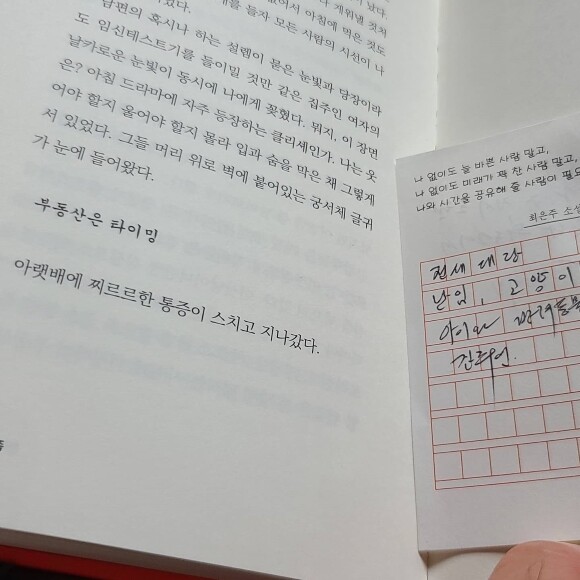 게워낼 것처
없어서 아침에 먹은 것도
를 들자 모든 사람의 시선이 나
남편의 혹시나 하는 설렘이 묻은 눈빛과 당장이라
도 임신테스트기를 들이밀 것만 같은 집주인 여자의
날카로운 눈빛이 동시에 나에게 꽂혔다. 뭐지, 이 장면
은? 아침 드라마에 자주 등장하는 클리셰인가. 나는 웃
어야 할지 울어야 할지 몰라 입과 숨을 막은 채 그렇게
서 있었다. 그들 머리 위로 벽에 붙어있는 궁서체 글귀
가 눈에 들어왔다.
부동산은 타이밍
아랫배에 찌르르한 통증이 스치고 지나갔다.
나 없이도 늘 바쁜 사람 말고,
나 없이도 미래가 꽉 찬 사람 말고,
나와 시간을 공유해 줄 사람이 필요
최은주 소설
전세 대란
난임, 고양이
아이와